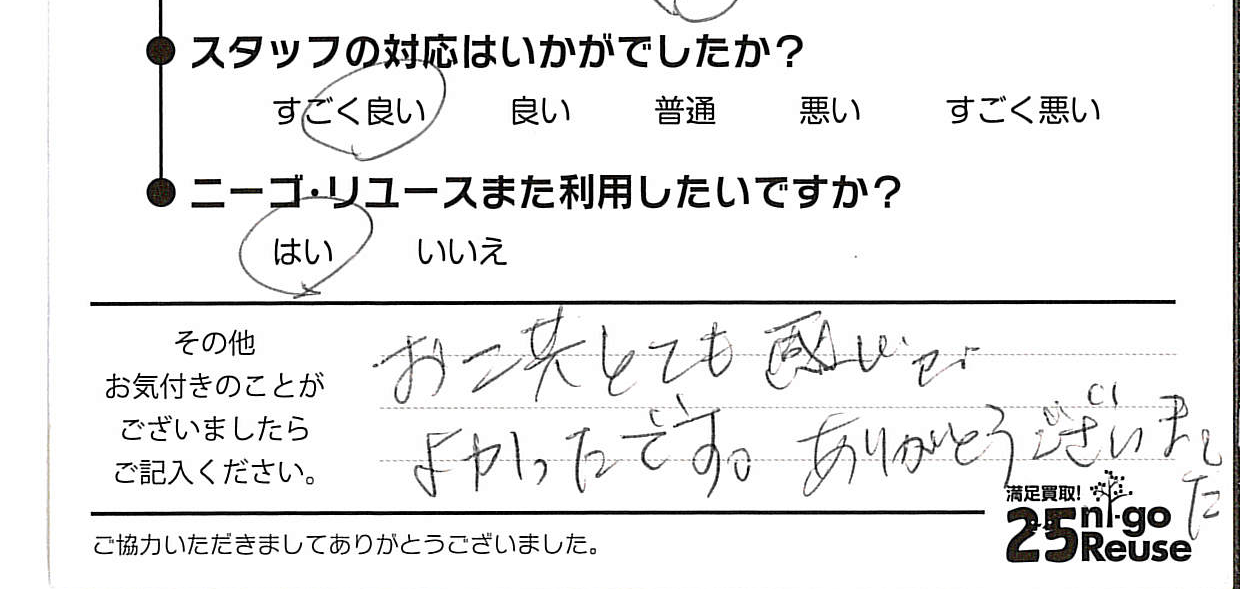 スタッフの対応はいかがでしたか？
すごく良い 良い 普通 悪い すごく悪い
ニーゴ・リユースまた利用したいですか？
はい いいえ
その他
お気付きのことが
ございましたら
ご記入ください。
お二共とても感じが
よかったです。ありがとうございまし
た
満足買取!
25 ni-go
Reuse
ご協力いただきましてありがとうございました。